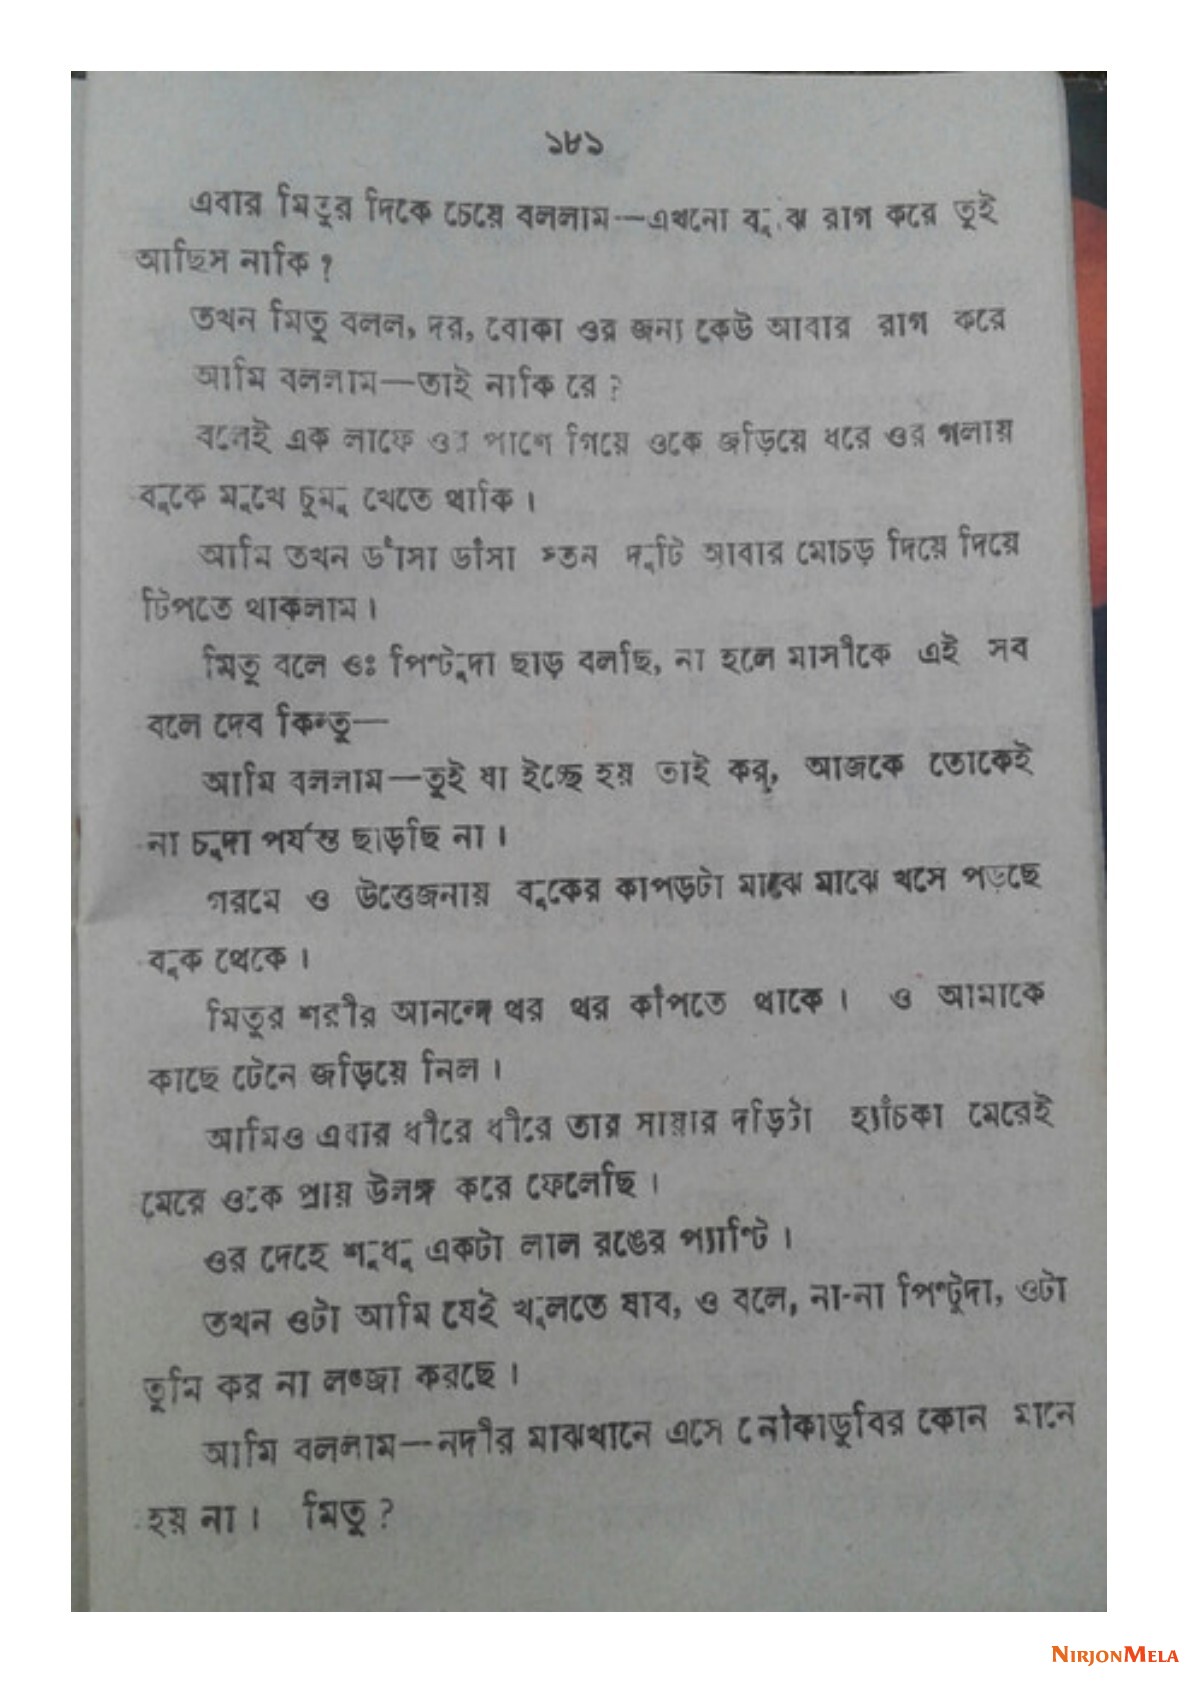 ১৮১
এবার মিতুর দিকে চেয়ে বললাম—এখনো বুঝি রাগ করে তুই
আছিস নাকি ?
তখন মিতু বলল, দর, বোকা ওর জন্য কেউ আবার রাগ করে
আমি বললাম—তাই নাকি রে ?
বলেই এক লাফে ওর পাশে গিয়ে ওকে জড়িয়ে ধরে ওর গলায়
বুকে মুখে চুমু খেতে থাকি ।
আমি তখন ডাঁসা ডাঁসা স্তন দুটি আবার মোচড় দিয়ে দিয়ে
টিপতে থাকলাম ।
মিতু বলে ওঃ পিন্টুদা ছাড় বলছি, না হলে মাসীকে এই সব
বলে দেব কিন্তু—
আমি বললাম—তুই যা ইচ্ছে হয় তাই কর্, আজকে তোকেই
না চুদা পর্যন্ত ছাড়ছি না ।
গরমে ও উত্তেজনায় বুকের কাপড়টা মাঝে মাঝে খসে পড়ছে
বুক থেকে ।
মিতুর শরীর আনন্দে থর থর কাঁপতে থাকে । ও আমাকে
কাছে টেনে জড়িয়ে নিল ।
আমিও এবার ধীরে ধীরে তার সায়ার দড়িটা হ্যাঁচকা মেরেই
মেরে ওকে প্রায় উলঙ্গ করে ফেলেছি ।
ওর দেহে শুধু একটা লাল রঙের প্যান্টি ।
তখন ওটা আমি যেই খুলতে যাব, ও বলে, না-না পিন্টুদা, ওটা
তুমি কর না লজ্জা করছে ।
আমি বললাম—নদীর মাঝখানে এসে নৌকাডুবির কোন মানে
হয় না । মিতু ?
NIRJONMELA